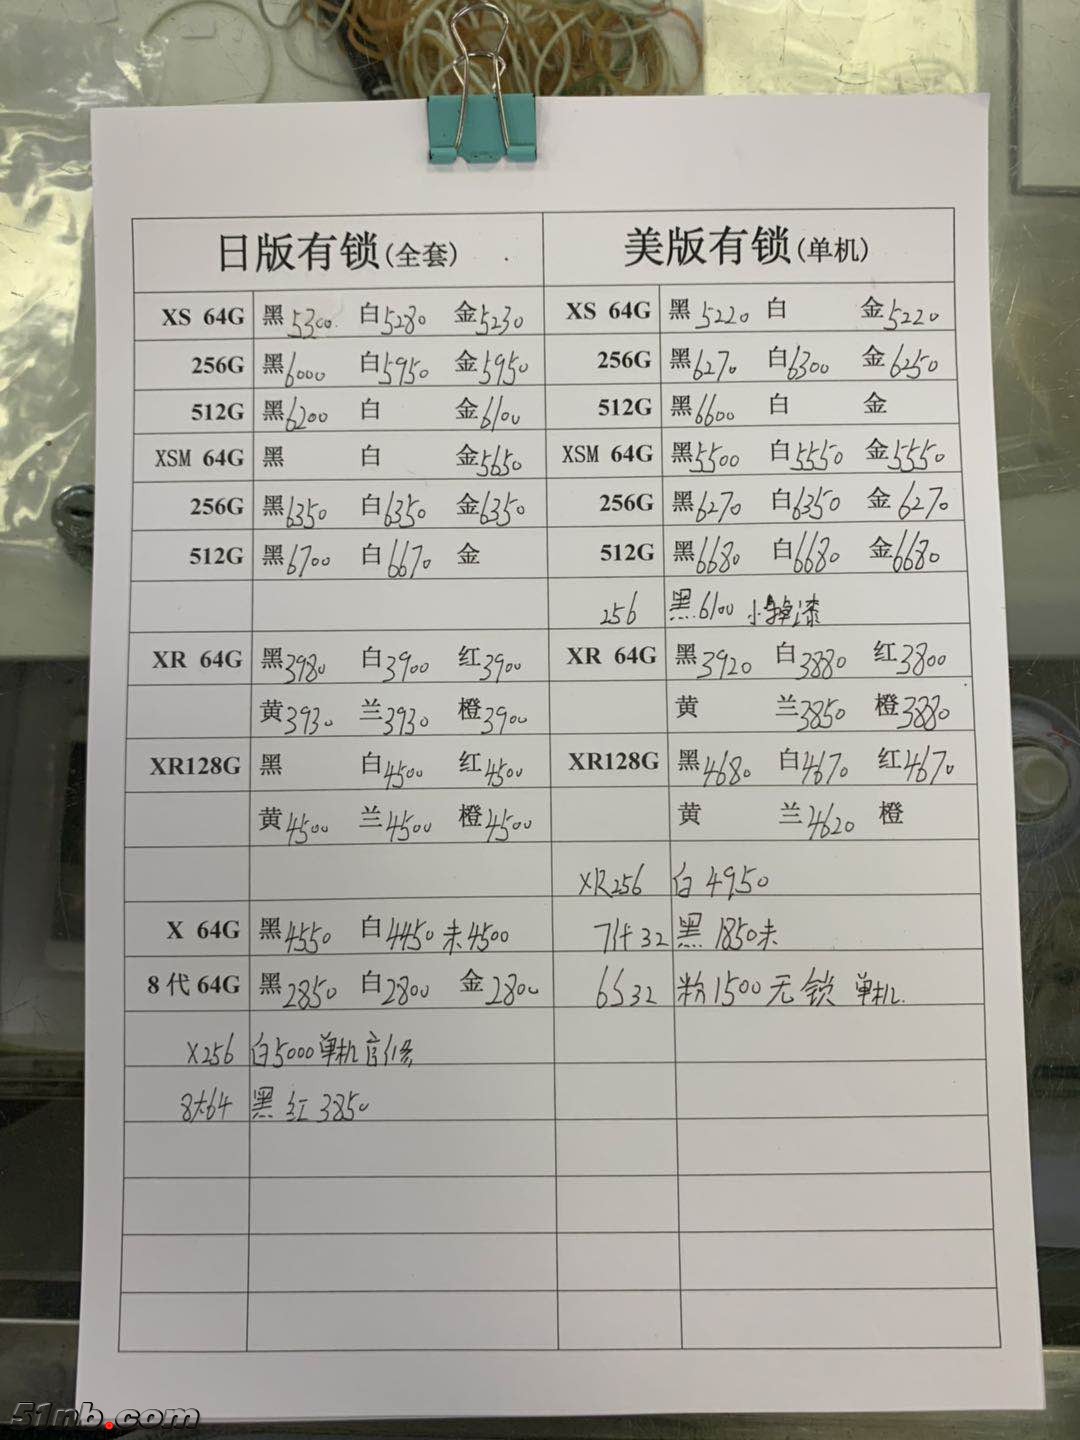 日版有锁(全套) 美版有锁(单机)
XS 64G 黑5300 白5280 金5230 XS 64G 黑5220 白 金5220
256G 黑6000 白5950 金5950 256G 黑6270 白6300 金6250
512G 黑6200 白 金6100 512G 黑6600 白 金
XSM 64G 黑 白 金5650 XSM 64G 黑5500 白5550 金5550
256G 黑6350 白6350 金6350 256G 黑6270 白6350 金6270
512G 黑6700 白6670 金 512G 黑6680 白6680 金6680
256 黑6100 小掉漆
XR 64G 黑3980 白3900 红3900 XR 64G 黑3920 白3880 红3800
黄3930 兰3930 橙3900 黄 兰3850 橙3880
XR128G 黑 白4500 红4500 XR128G 黑4680 白4670 红4670
黄4500 兰4500 橙4500 黄 兰4620 橙
XR256 白4950
X 64G 黑4550 白4450 未4500 7代32 黑1850未
8代64G 黑2850 白2800 金2800 6S32 粉1500无锁 单机
X256 白5000单机官修
8大64 黑 红 3850
51nb.com